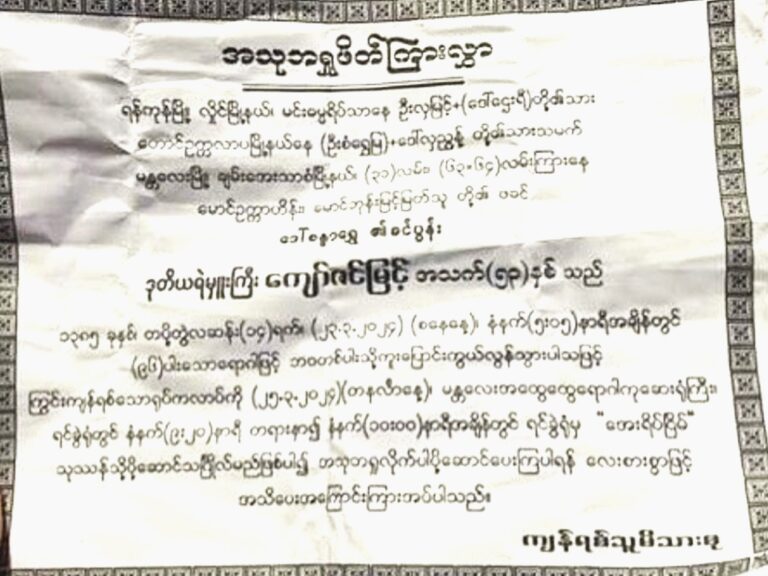 အသုဘရှုဖိတ်ကြားလွှာ
ရန်ကုန်မြို့၊ လှိုင်မြို့နယ်၊ မင်းဓမ္မရိပ်သာနေ ဦးလှမြင့်+(ဒေါ်ဌေးရီ)တို့၏သား
တောင်ဥက္ကလာပမြို့နယ်နေ (ဦးစံရွှေမြ)+ဒေါ်လှညွန့် တို့၏သားသမက်
မန္တလေးမြို့ ချမ်းအေးသာစံမြို့နယ်၊ (၃၁)လမ်း၊ (၆၃-၆၄)လမ်းကြားနေ
မောင်ဥက္ကာဟိန်း၊ မောင်ဘုန်းမြင့်မြတ်သူ တို့၏ ဖခင်
ဒေါ်စန္ဒာရွှေ ၏ခင်ပွန်း
ဒုတိယရဲမှူးကြီး ကျော်ဇင်မြင့် အသက်(၅၃)နှစ် သည်
၁၃၈၅ ခုနှစ်၊ တပို့တွဲလဆန်း(၁၄)ရက်၊ (၂၃.၃.၂၀၂၄) (စနေနေ့)၊ နံနက်(၅း၁၅)နာရီအချိန်တွင်
(၉၆)ပါးသောရောဂါဖြင့် ဘဝတစ်ပါးသို့ကူးပြောင်းကွယ်လွန်သွားပါသဖြင့်
ကြွင်းကျန်ရစ်သောရုပ်ကလာပ်ကို (၂၅.၃.၂၀၂၄)(တနင်္လာနေ့)၊ မန္တလေးအထွေထွေရောဂါကုဆေးရုံကြီး၊
ရင်ခွဲရုံတွင် နံနက်(၉း၂၀)နာရီ တရားနာ၍ နံနက်(၁၀း၀၀)နာရီအချိန်တွင် ရင်ခွဲရုံမှ "အေးရိပ်ငြိမ်"
သုဿန်သို့ပို့ဆောင်သင်္ဂြိုလ်မည်ဖြစ်ပါ၍ အသုဘရှုလိုက်ပါပို့ဆောင်ပေးကြပါရန် လေးစားစွာဖြင့်
အသိပေးအကြောင်းကြားအပ်ပါသည်။
ကျန်ရစ်သူမိသားစု